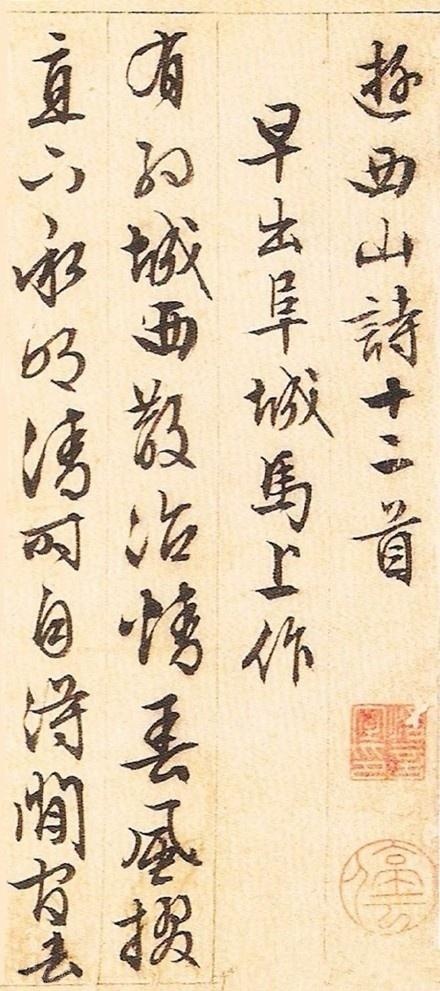 遊西山詩十二首
早出阜城馬上作
有約城西散冶情春風掇
直下承明清時自得閒